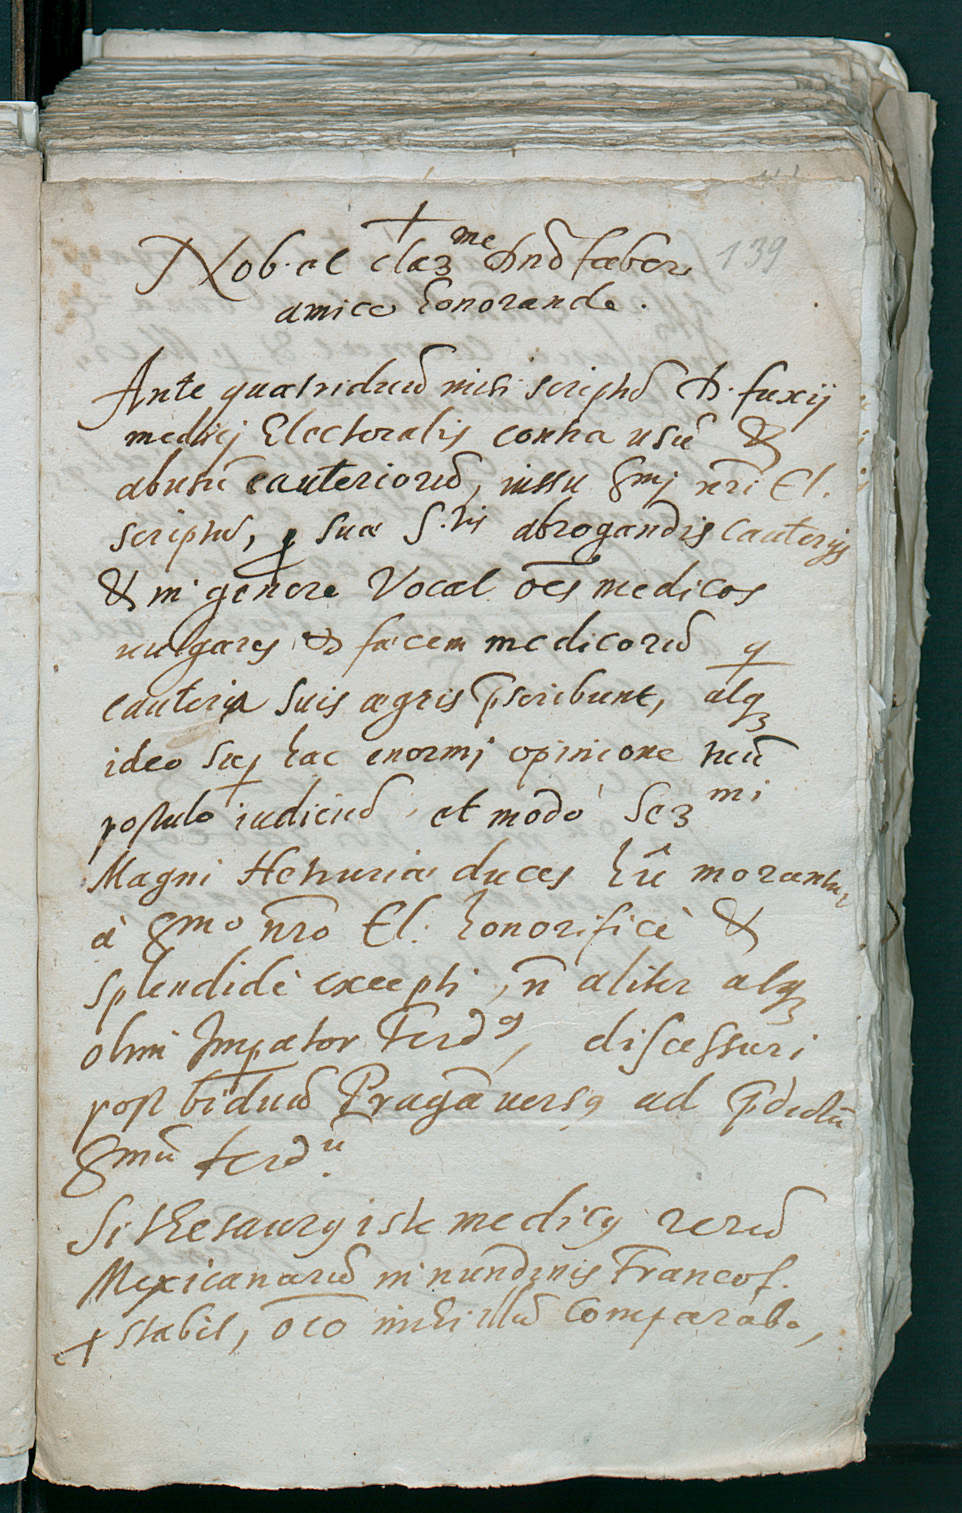 139
Nob. ac claʒ me Dn̄ð faber
amice honorande.
Ante quatriduū mihi scriptū D. fuxij
medicj Electoralis contra usū &
abusū cauteriorū, iussu Smj nr̄i El.
scriptū, p suae S. tis abrogandis Cauterijs
& in genere Vocat oēs medicos
vulgares & fæcem medicorū q
cauteria suis ægris p̄scribunt, atq
ideo sup hac enormj opinione tuū
postulo iudiciū, et modò Seʒ mi
Magni Hetruriæ duces hîc morantur
à Smo nr̄o El. honorificè &
splendidè excepti, n̄ aliter atq
olim Impator Ferdꝰ, discessuri
post biduū Pragā versꝰ ad p̄dictū
Smū Ferdū.
Si thesaurꝰ iste medicꝰ rerū
Mexicanarū in nundinis Francof.
pstabit, oīo mihi illū comparabo,